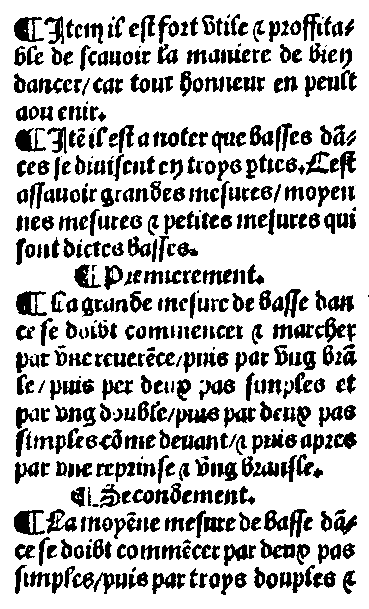 ¶ Item il est fort vtile & proffita/
ble de scauoir la maniere de bien
dancer/car tout honneur en peult
aduenir.
¶ Itē il est a noter que basses dā/
ces se diuisent en troys ꝑties. Cest
assauoir grandes mesures/moyen
nes mesures & petites mesures qui
sont dictes basses.
¶ Premierement.
¶ La grande mesure de basse dan
ce se doibt commencer & marcher
par vne reuerēce/puis par vng brā
le/puis per deux pas simples et
par vng double/puis par deux pas
simples cōme deuant/& puis apres
par vne reprinse & vng bransle.
¶ Secondement.
¶ La moyēne mesure de basse dā/
ce se doibt commēcer par deux pas
simples/puis par troys doubles &